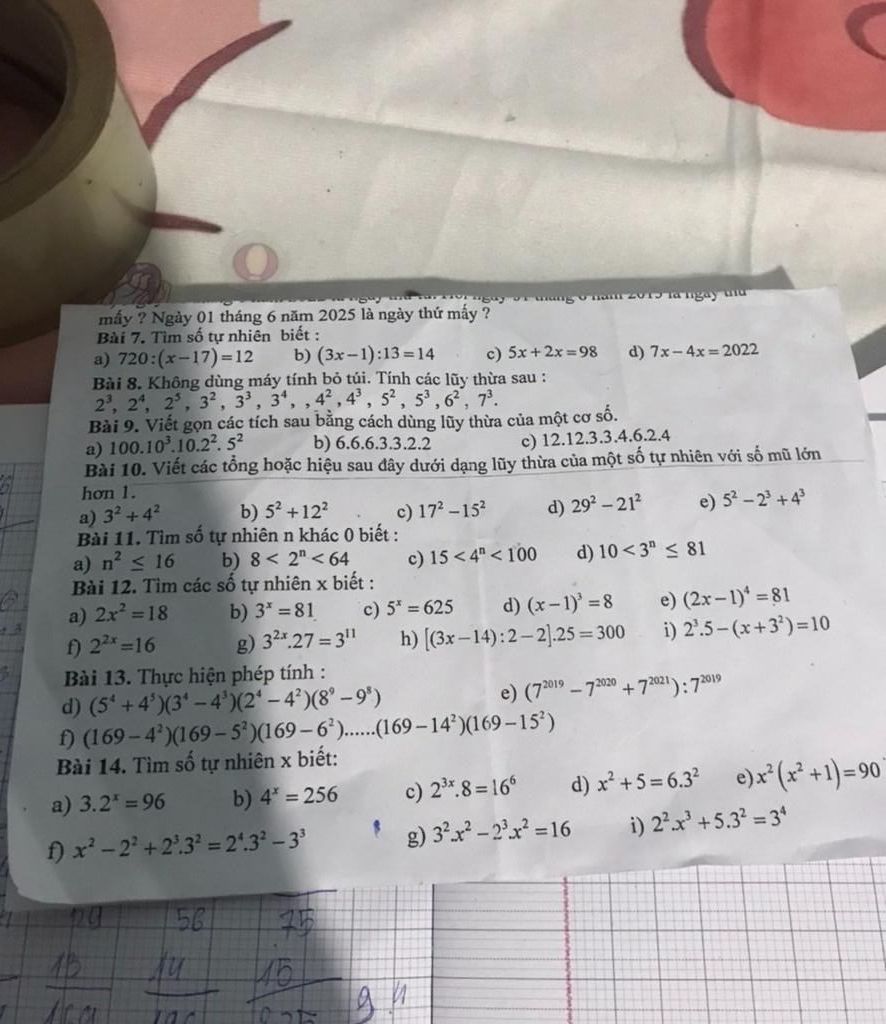 ngày 31 tháng 6 năm 2015 là ngày thứ
mấy ? Ngày 01 tháng 6 năm 2025 là ngày thứ mấy ?
Bài 7. Tìm số tự nhiên biết :
a) 720:(x−17)=12 b) (3x−1):13=14 c) 5x+2x=98 d) 7x−4x=2022
Bài 8. Không dùng máy tính bỏ túi. Tính các lũy thừa sau :
2³, 2⁴, 2⁵, 3², 3³, 3⁴, , 4², 4³, 5², 5³, 6², 7³.
Bài 9. Viết gọn các tích sau bằng cách dùng lũy thừa của một cơ số.
a) 100.10³.10.2².5² b) 6.6.6.3.3.2.2 c) 12.12.3.3.4.6.2.4
Bài 10. Viết các tổng hoặc hiệu sau đây dưới dạng lũy thừa của một số tự nhiên với số mũ lớn
hơn 1.
a) 3²+4² b) 5²+12² c) 17²−15² d) 29²−21² e) 5²−2³+4³
Bài 11. Tìm số tự nhiên n khác 0 biết :
a) n² ≤ 16 b) 8 < 2ⁿ < 64 c) 15 < 4ⁿ < 100 d) 10 < 3ⁿ ≤ 81
Bài 12. Tìm các số tự nhiên x biết :
a) 2x²=18 b) 3ˣ=81 c) 5ˣ=625 d) (x−1)³=8 e) (2x−1)⁴=81
f) 2²ˣ=16 g) 3²ˣ.27=3¹¹ h) [(3x−14):2−2].25=300 i) 2³.5−(x+3²)=10
Bài 13. Thực hiện phép tính :
d) (5⁴+4⁵)(3⁴−4³)(2⁴−4²)(8⁹−9⁸) e) (7²⁰¹⁹−7²⁰²⁰+7²⁰²¹):7²⁰¹⁹
f) (169−4²)(169−5²)(169−6²)......(169−14²)(169−15²)
Bài 14. Tìm số tự nhiên x biết:
a) 3.2ˣ=96 b) 4ˣ=256 c) 2³ˣ.8=16⁶ d) x²+5=6.3² e)x²(x²+1)=90
f) x²−2²+2³.3²=2⁴.3²−3³ g) 3².x²−2³.x²=16 i) 2².x³+5.3²=3⁴
56 75
13 14 15